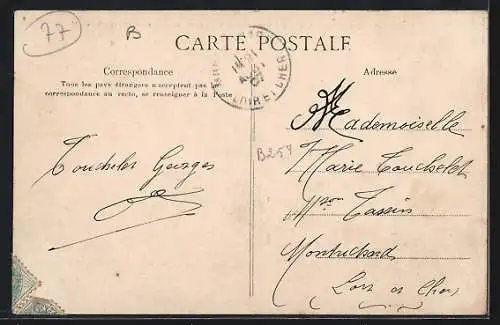 77
B
CARTE POSTALE
Correspondance
Tous les pays étrangers n'acceptent pas la
correspondance au recto, se renseigner à la Poste
LOIR-ET-CHER
Touchelet Georges
Adresse
B254
Mademoiselle
Marie Touchelet
Mson Tassin
Montrichard
Loir et Cher